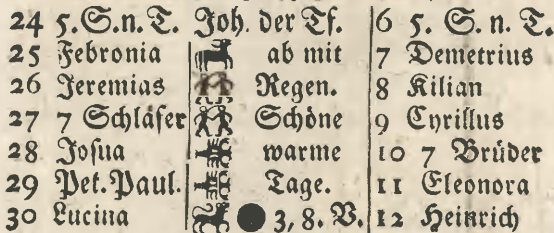 24 5. S. n. T. Joh. der Tf. 6 5. S. n. T.
25 Febronia ab mit 7 Demetrius
26 Jeremias Regen. 8 Kilian
27 7 Schläfer Schöne 9 Cyrillus
28 Josua warme 10 7 Brüder
29 Pet. Paul. Tage. 11 Eleonora
30 Lucina 3, 8. V. 12 Heinrich